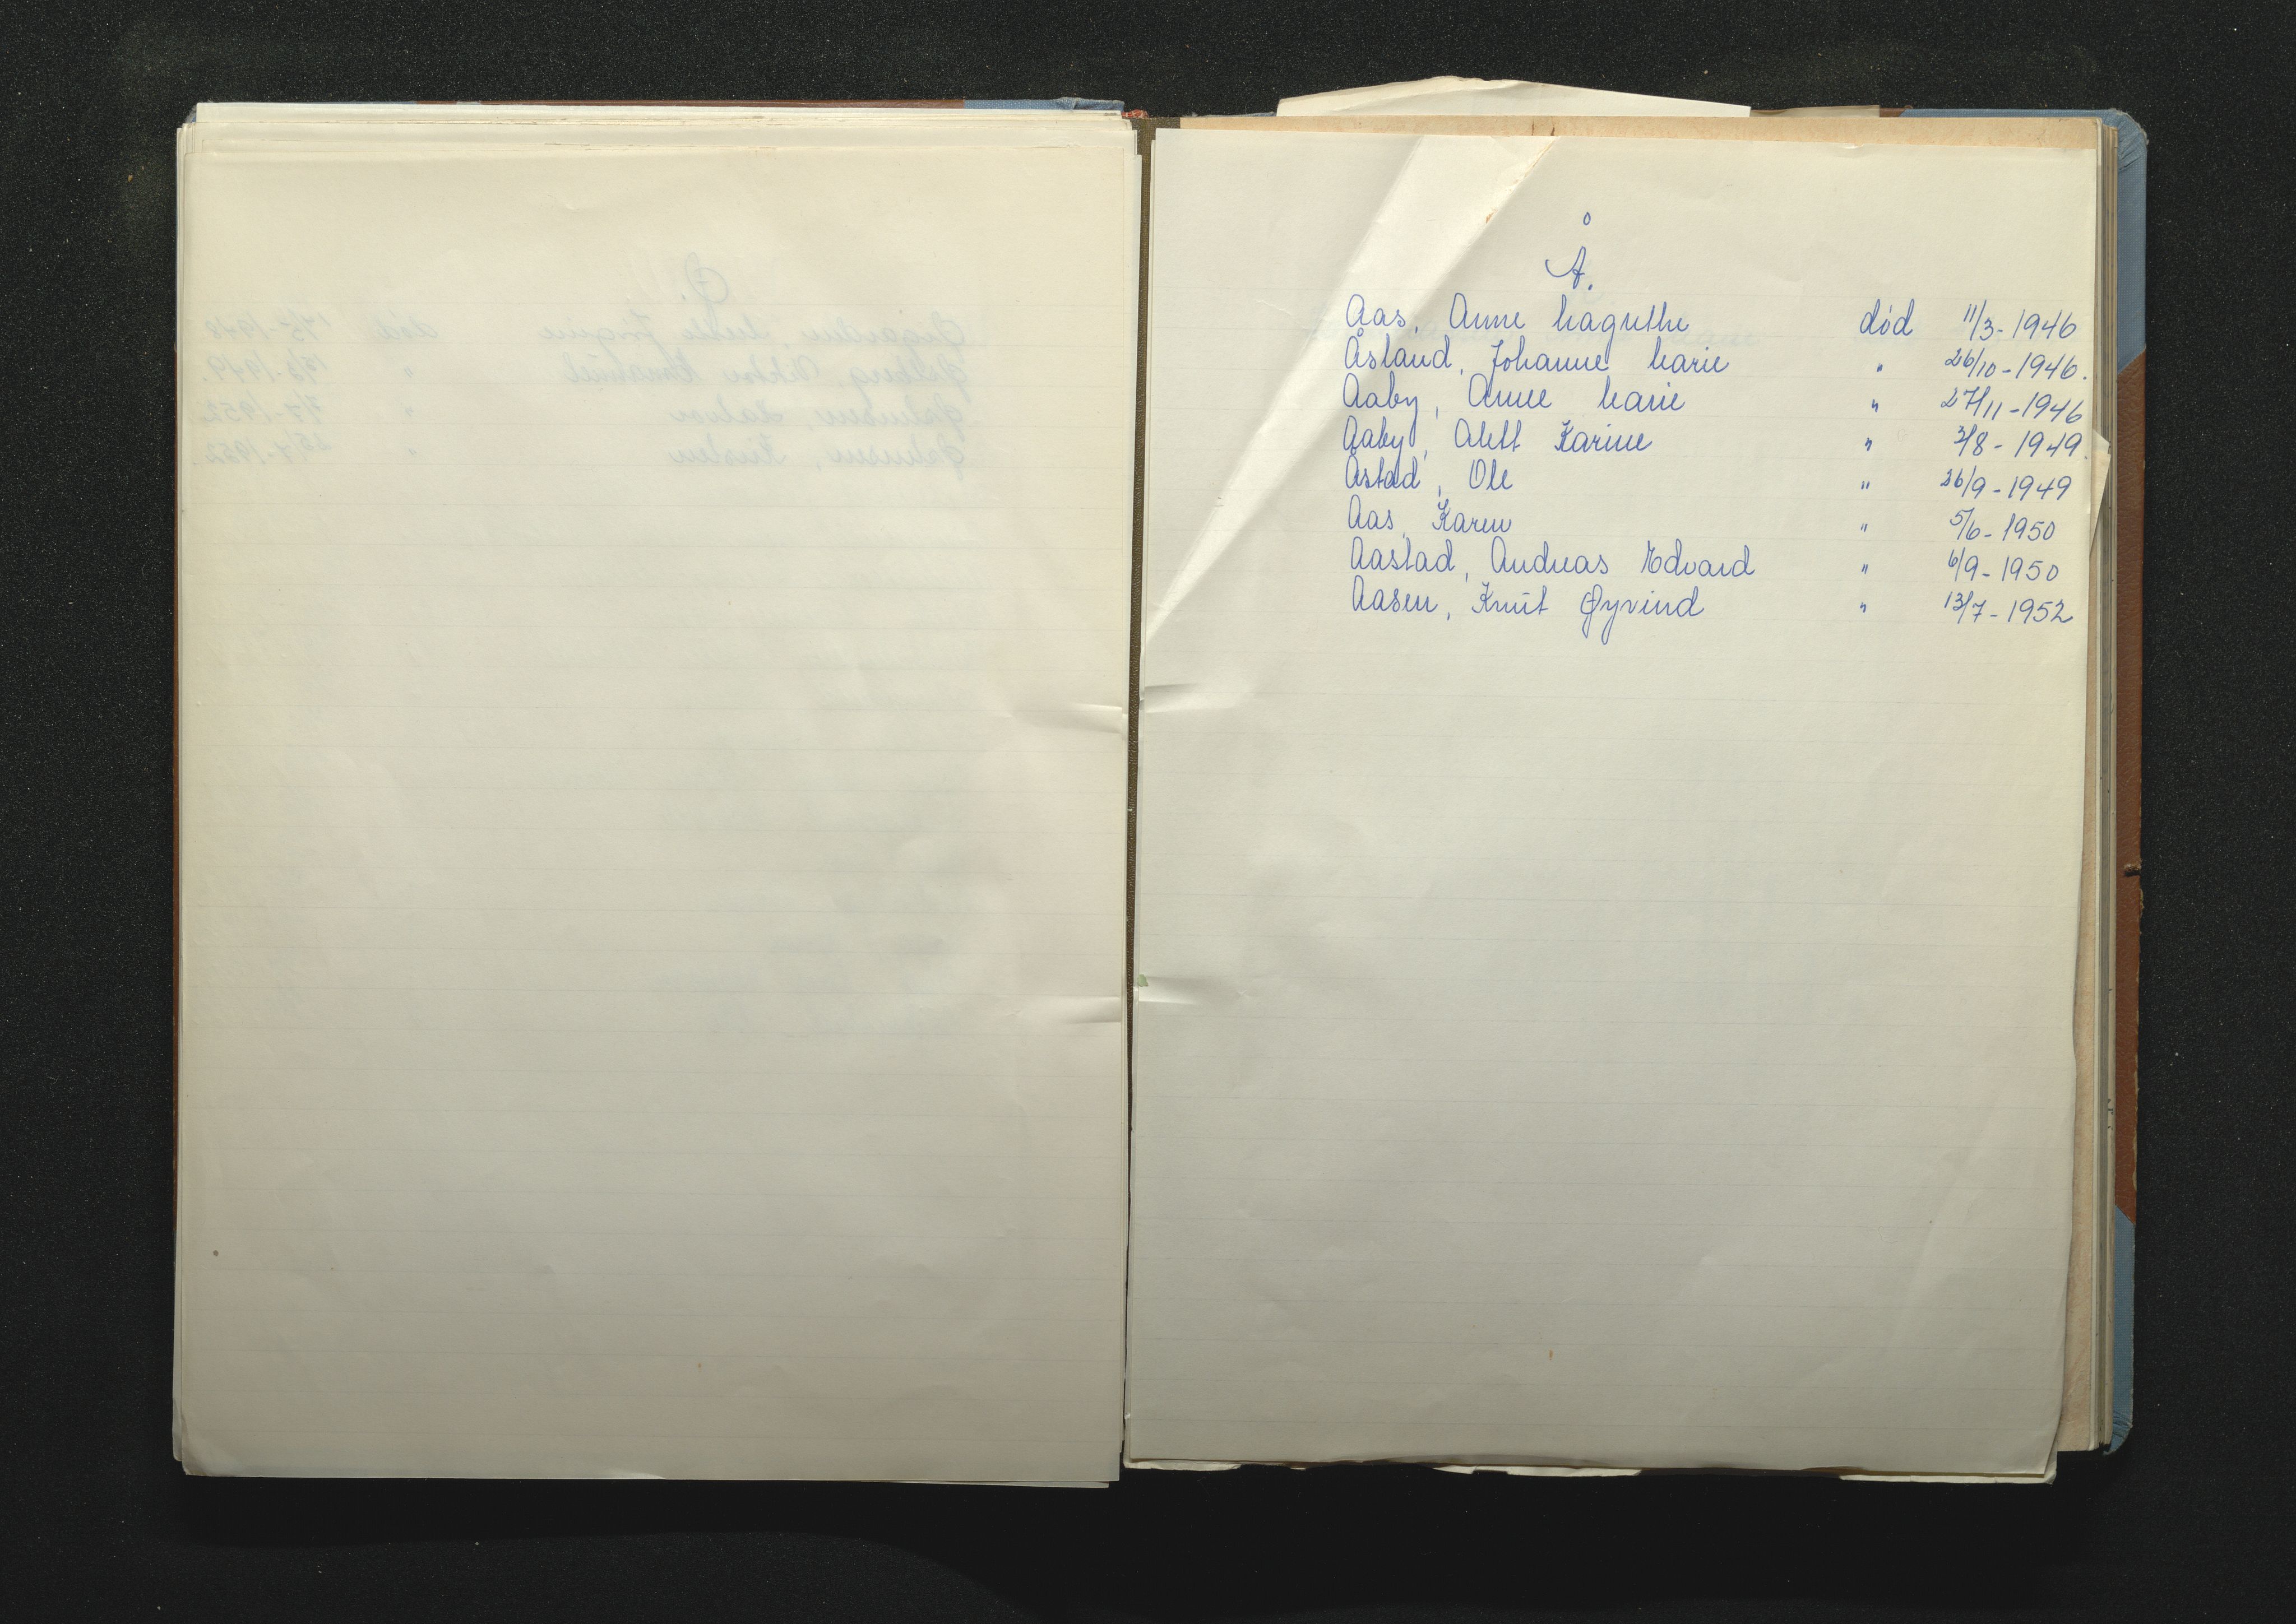 Å.
Aas, Anne Magrethe død 11/3-1946
Åsland, Johanne Marie " 26/10-1946.
Aaby, Anne Marie " 27/11-1946
Aaby, Alett Karine " 3/8-1949.
Åstad, Ole " 26/9-1949
Aas, Karen " 5/6-1950
Aastad, Andreas Edvard " 6/9-1950
Aasen, Knut Øyvind " 13/7-1952